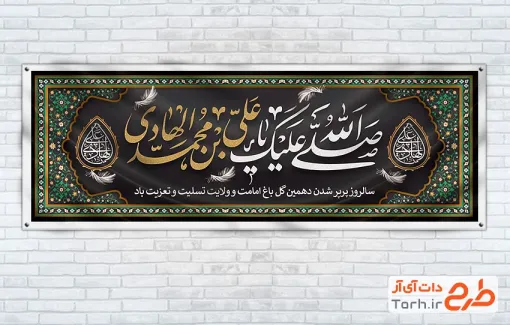 صلی الله علیک یا علی بن محمد الهادی
سالروز پرپر شدن دهمین گل باغ امامت و ولایت تسلیت و تعزیت باد
طرح دات آی آر
Torh.ir